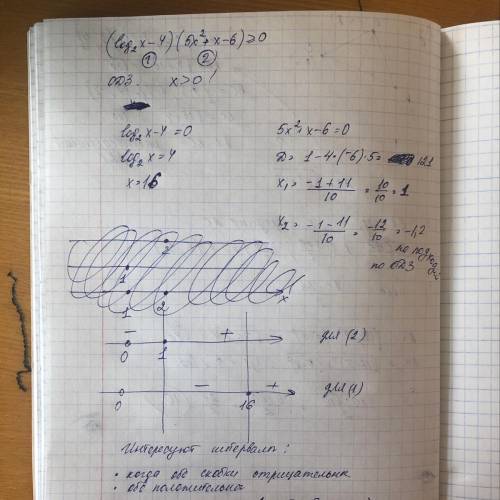 (log₂x-4)(5x²+x-6)≥0
① ②
ОДЗ: x>0!
log₂x-4=0
log₂x=4
x=16
5x²+x-6=0
D= 1-4·(-6)·5= 121
x₁= (-1+11)/10 = 10/10 = 1
x₂= (-1-11)/10 = -12/10 = -1,2
по ОДЗ
1 2 x
- +
0 1
для (2)
- +
0 16
для (1)
Интересуют интервалы:
• когда обе скобки отрицательны
• обе положительны